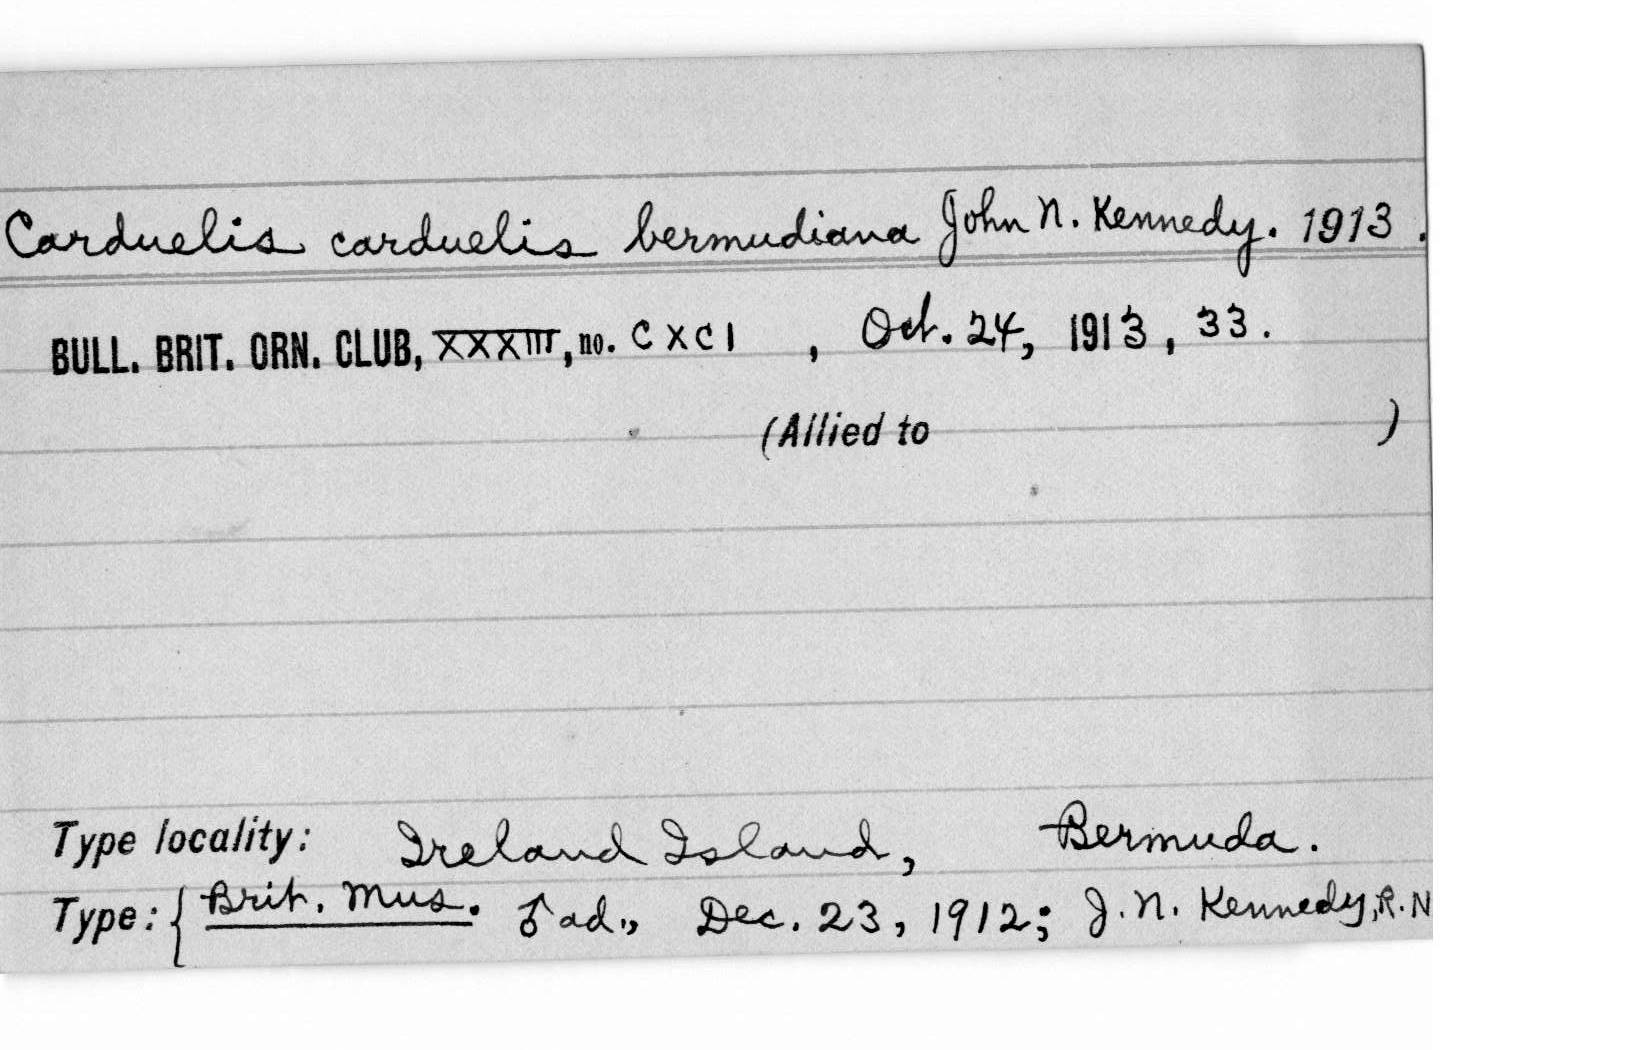 Carduelis carduelis bermudiana John N. Kennedy. 1913.
BULL. BRIT. ORN. CLUB, XXXIII, no. CXCI , Oct. 24, 1913, 33.
(Allied to )
Type locality: Ireland Island, Bermuda.
Type: { Brit. Mus. ♂ ad., Dec. 23, 1912; J. N. Kennedy, R. N